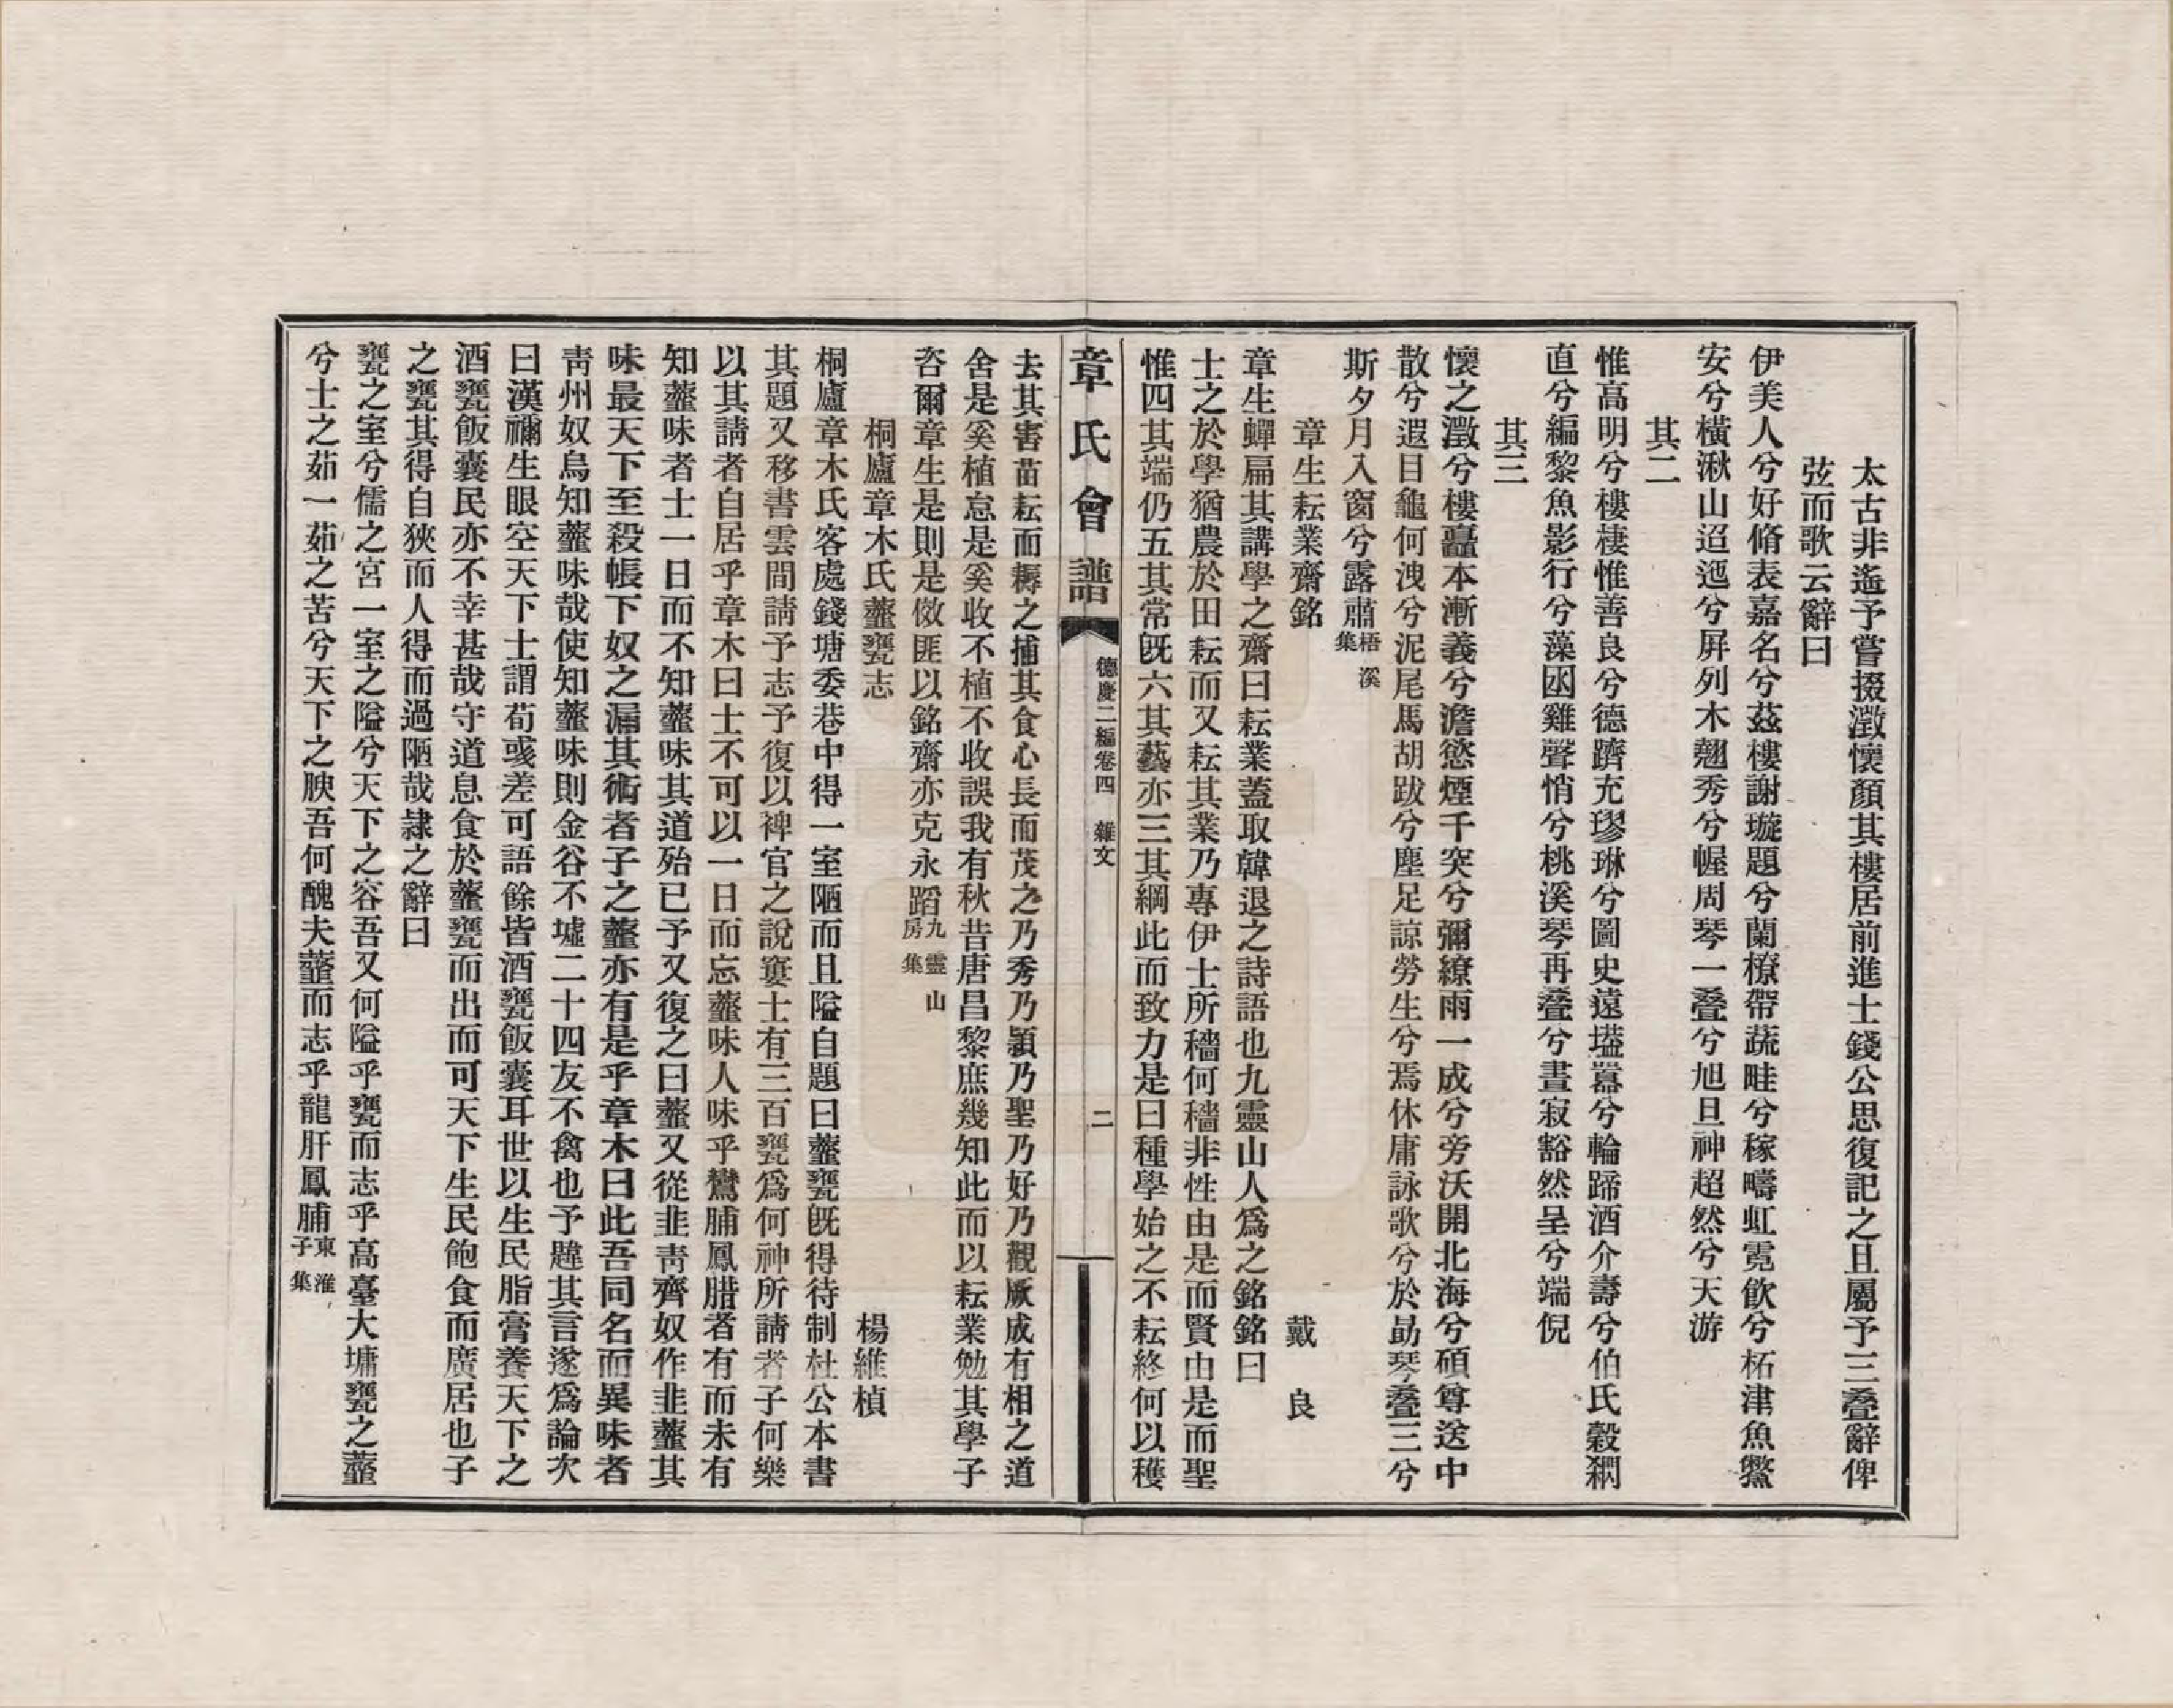 太古非遙予嘗掇澂懷顏其樓居前進士錢公思復記之且屬予三疊辭俾
弦而歌云辭曰
伊美人兮好脩表嘉名兮茲樓謝璇題兮蘭橑帶蔬畦兮稼疇虹霓飲兮柘津魚鱉
安兮橫湫山迢迤兮屏列木翹秀兮幄周琴一疊兮旭旦神超然兮天游
其二
惟高明兮樓棲惟善良兮德躋充璆琳兮圖史遠壒囂兮輪蹄酒介壽兮伯氏穀
直兮編黎魚影行兮藻函雞聲悄兮桃溪琴再疊兮晝寂豁然呈兮端倪
其三
懷之澂兮樓矗本漸義兮澹慾煙千突兮彌繚雨一成兮旁沃開北海兮碩尊送中
散兮遐目龜何洩兮泥尾馬胡跋兮塵足諒勞生兮焉休庸詠歌兮於勗琴疊三兮
斯夕月入窗兮露肅梧溪集
章生耘業齋銘　戴良
章生蟬扁其講學之齋曰耘業蓋取韓退之詩語也九靈山人爲之銘銘曰
士之於學猶農於田耘而又耘其業乃專伊士所穡何穡非性由是而賢由是而聖
惟四其端仍五其常旣六其藝亦三其綱此而致力是曰種學始之不耘終何以穫
章氏會譜　德慶二編卷四　雜文　二
去其害苗耘而耨之捕其食心長而茂之乃秀乃穎乃聖乃好乃觀厥成有相之道
舍是奚植怠是奚收不植不收誤我有秋昔唐昌黎庶幾知此而以耘業勉其學子
咨爾章生是則是傚匪以銘齋亦克永蹈九靈山房集
桐廬章木氏虀甕志　楊維楨
桐廬章木氏客處錢塘委巷中得一室陋而且隘自題曰虀甕旣得待制杜公本書
其題又移書雲間請予志予復以稗官之說窶士有三百甕爲何神所請者子何樂
以其請者自居乎章木曰士不可以一日而忘虀味人味乎鸞脯鳳腊者有而未有
知虀味者士一日而不知虀味其道殆已予又復之曰虀又從韭靑齊奴作韭虀其
味最天下至殺帳下奴之漏其術者子之虀亦有是乎章木曰此吾同名而異味者
靑州奴烏知虀味哉使知虀味則金谷不墟二十四友不禽也予韙其言遂爲論次
曰漢禰生眼空天下士謂荀彧差可語餘皆酒甕飯囊耳世以生民脂膏養天下之
酒甕飯囊民亦不幸甚哉守道息食於虀甕而出而可天下生民飽食而廣居也子
之甕其得自狹而人得而過陋哉隷之辭曰
甕之室兮儒之宮一室之隘兮天下之容吾又何隘乎甕而志乎高臺大墉甕之虀
兮士之茹一茹之苦兮天下之腴吾何醜夫虀而志乎龍肝鳳脯東淮子集